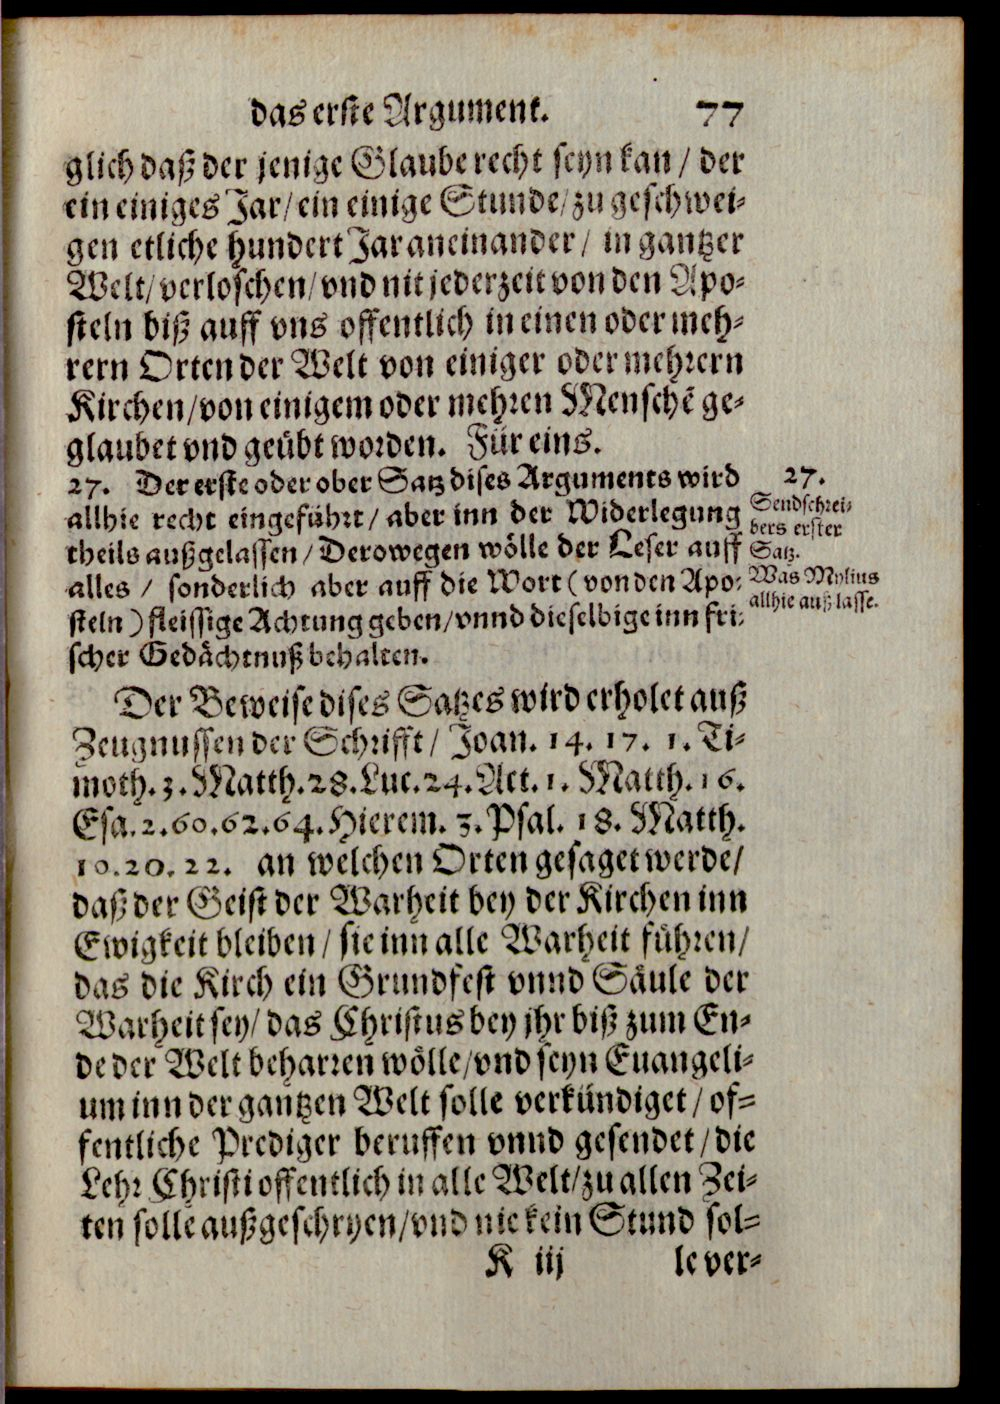 das erste Argument. 77
glich daß der jenige Glaube recht seyn kan / der
ein einiges Jar / ein einige Stunde / zu geschwei-
gen etliche hundert Jar aneinander / in gantzer
Welt / verloschen / vnd nit jederzeit von den Apo-
steln biß auff vns offentlich in einen oder meh-
rern Orten der Welt von einiger oder mehrern
Kirchen / von einigem oder mehren Menschẽ ge-
glaubet vnd geübt worden. Für eins.
27. Der erste oder ober Satz dises Arguments wird
allhie recht eingeführt / aber inn der Widerlegung
theils außgelassen / Derowegen wölle der Leser auff
alles / sonderlich aber auff die Wort (von den Apo-
steln) fleissige Achtung geben / vnnd dieselbige inn fri-
scher Gedächtnuß behalten.
27.
Sendschrei-
bers erster
Satz.
Was Mylius
allhie außlasse.
Der Beweise dises Satzes wird erholet auß
Zeugnussen der Schrifft / Joan. 14. 17. 1. Ti-
moth. 3. Matth. 28. Luc. 24. Act. 1. Matth. 16.
Esa. 2. 60. 62. 64. Hierem. 3. Psal. 18. Matth.
10. 20. 22. an welchen Orten gesaget werde /
daß der Geist der Warheit bey der Kirchen inn
Ewigkeit bleiben / sie inn alle Warheit führen /
das die Kirch ein Grundfest vnnd Säule der
Warheit sey / das Christus bey jhr biß zum En-
de der Welt beharren wölle / vnd seyn Euangeli-
um inn der gantzen Welt solle verkündiget / of-
fentliche Prediger beruffen vnnd gesendet / die
Lehr Christi offentlich in alle Welt / zu allen Zei-
ten solle außgeschryen / vnd nie kein Stund sol-
K iij le ver-